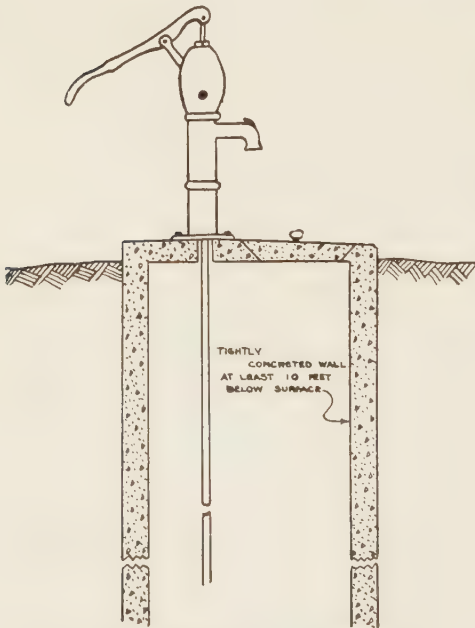 TIGHTLY
CONCRETED WALL
AT LEAST 10 FEET
BELOW SURFACE